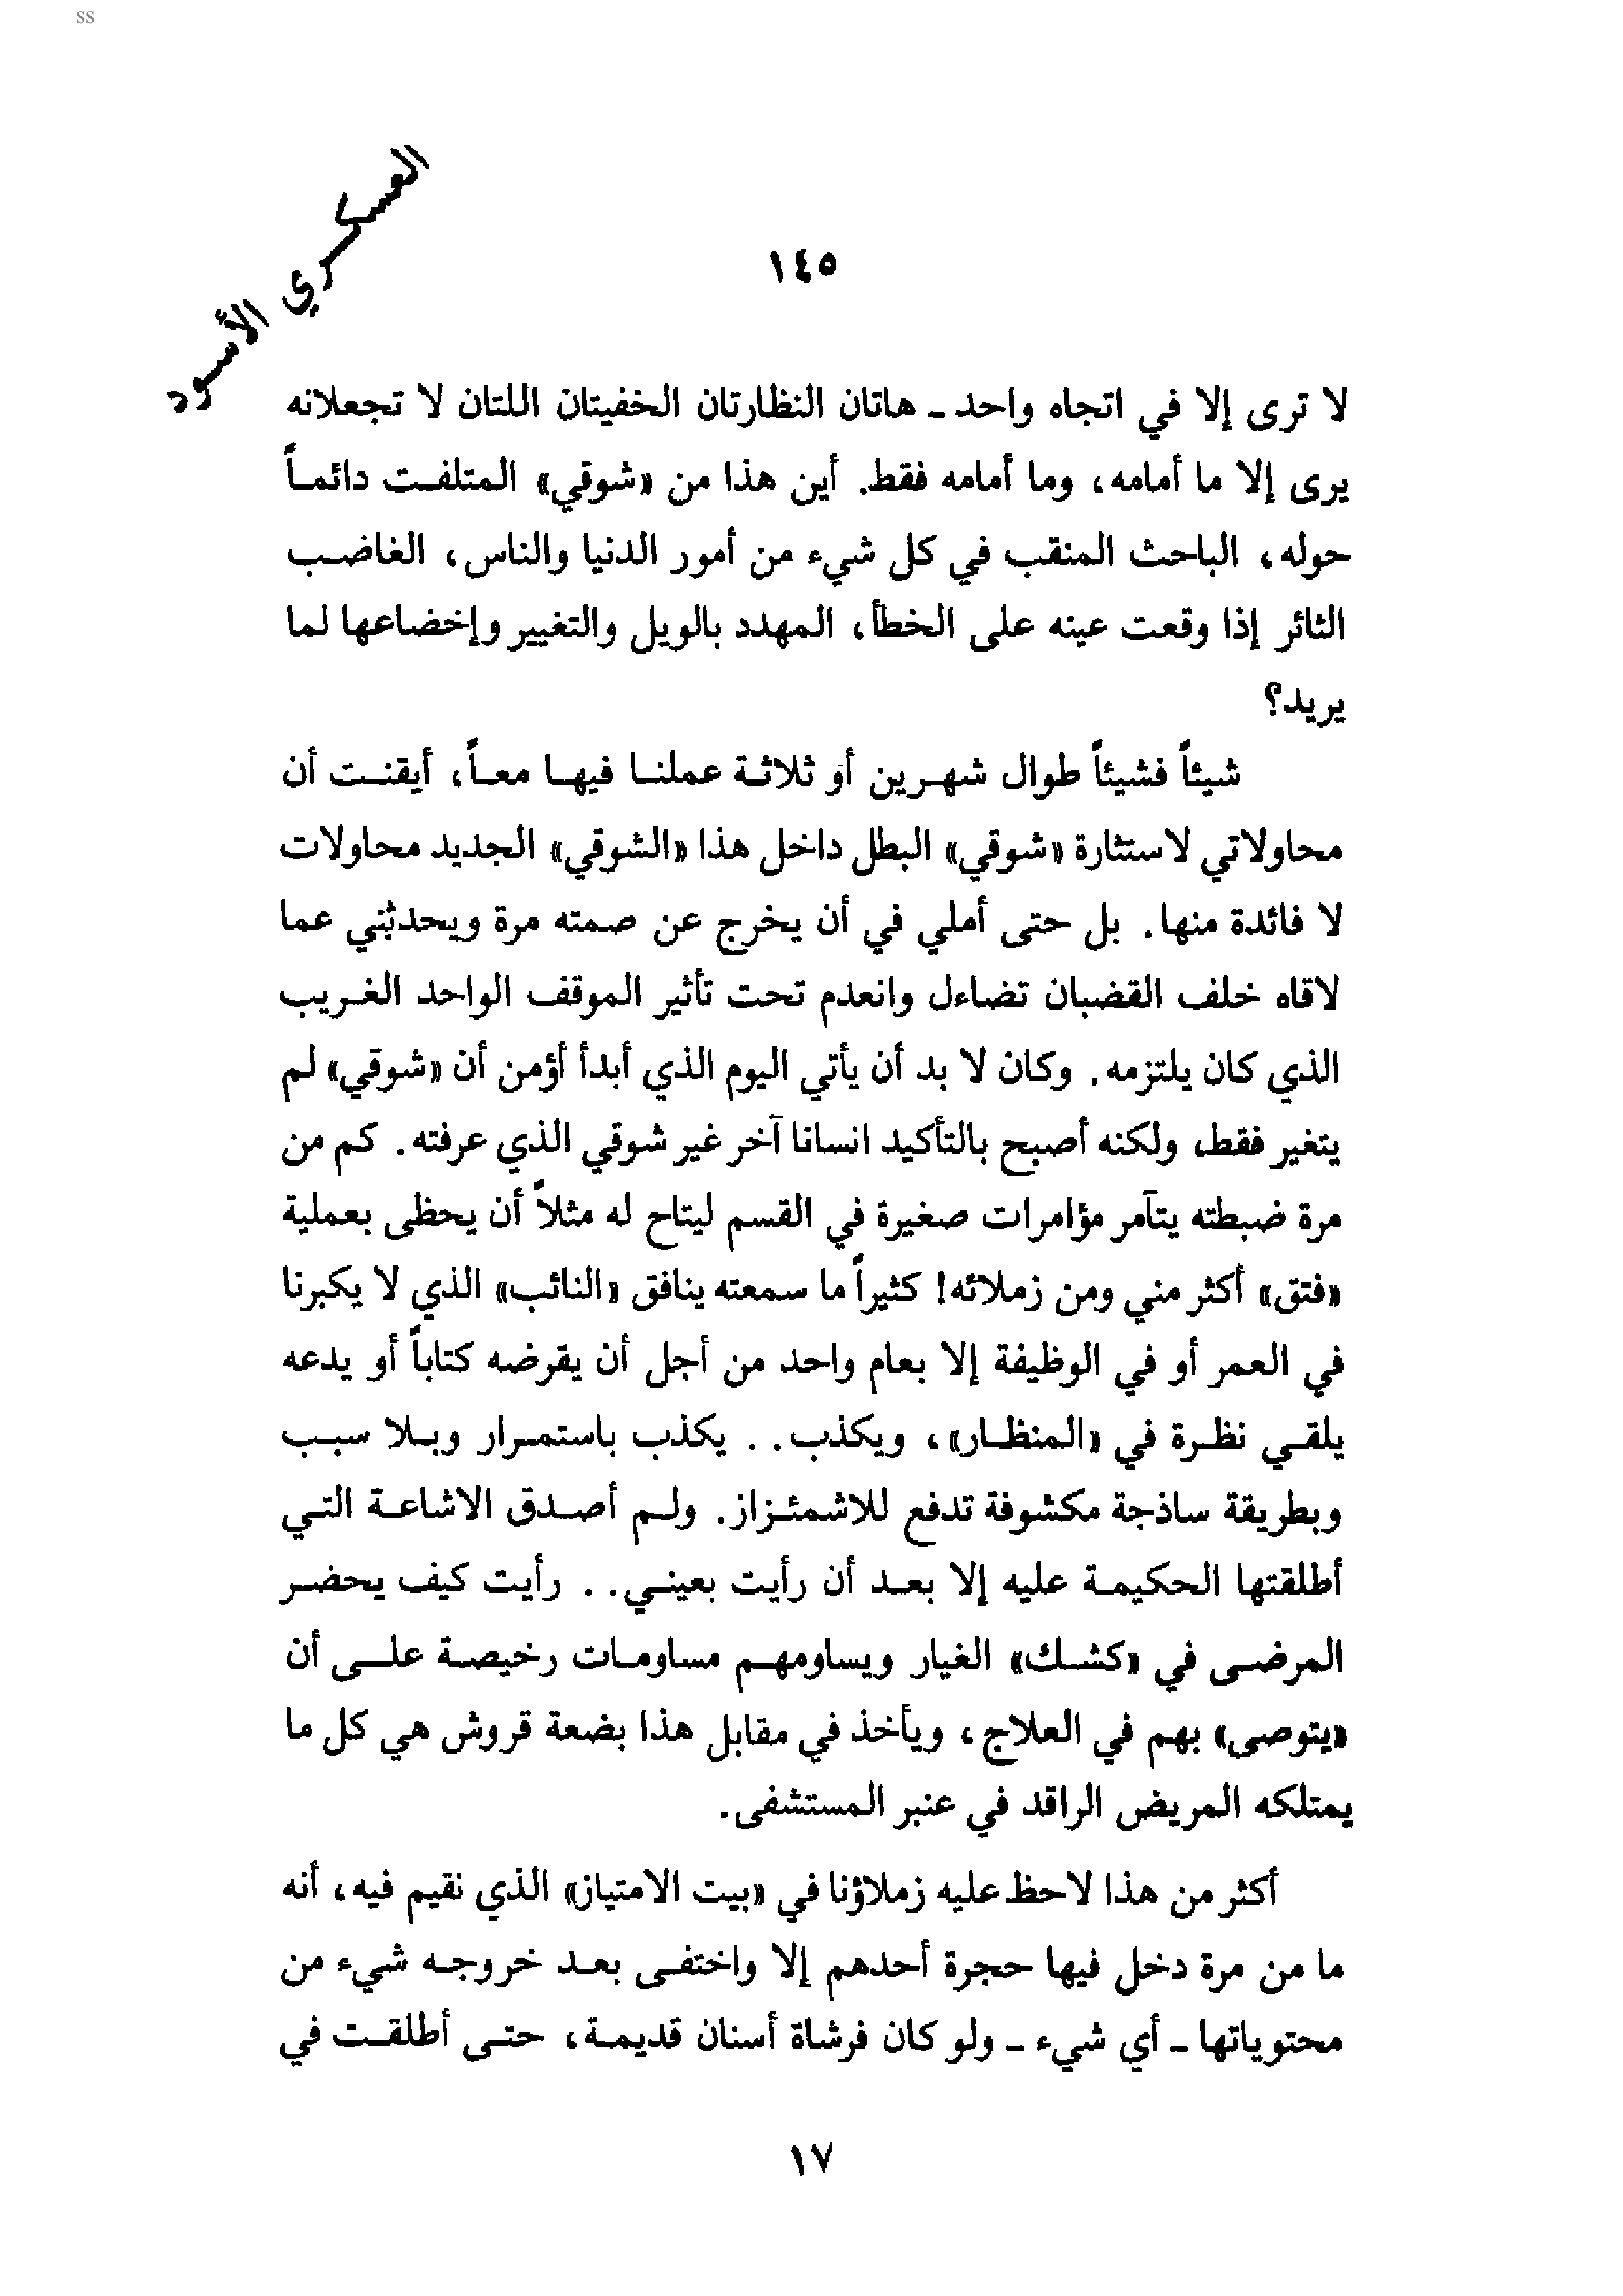 SS
العسكري الأسود
١٤٥
لا ترى إلا في اتجاه واحد ـ هاتان النظارتان الخفيتان اللتان لا تجعلانه
يرى إلا ما أمامه، وما أمامه فقط. أين هذا من «شوقي» المتلفت دائماً
حوله، الباحث المنقب في كل شيء من أمور الدنيا والناس، الغاضب
الثائر إذا وقعت عينه على الخطأ، المهدد بالويل والتغيير وإخضاعها لما
يريد؟
شيئاً فشيئاً طوال شهرين أو ثلاثة عملنا فيها معاً، أيقنت أن
محاولاتي لاستثارة «شوقي» البطل داخل هذا «الشوقي» الجديد محاولات
لا فائدة منها. بل حتى أملي في أن يخرج عن صمته مرة ويحدثني عما
لاقاه خلف القضبان تضاءل وانعدم تحت تأثير الموقف الواحد الغريب
الذي كان يلتزمه. وكان لا بد أن يأتي اليوم الذي أبدأ أؤمن أن «شوقي» لم
يتغير فقط، ولكنه أصبح بالتأكيد انسانا آخر غير شوقي الذي عرفته. كم من
مرة ضبطته يتآمر مؤامرات صغيرة في القسم ليتاح له مثلاً أن يحظى بعملية
«فتق» أكثر مني ومن زملائه! كثيراً ما سمعته ينافق «النائب» الذي لا يكبرنا
في العمر أو في الوظيفة إلا بعام واحد من أجل أن يقرضه كتاباً أو يدعه
يلقي نظرة في «المنظار»، ويكذب.. يكذب باستمرار وبلا سبب
وبطريقة ساذجة مكشوفة تدفع للاشمئزاز. ولم أصدق الاشاعة التي
أطلقتها الحكيمة عليه إلا بعد أن رأيت بعيني.. رأيت كيف يحضر
المرضى في «كشك» الغيار ويساومهم مساومات رخيصة على أن
«يتوصى» بهم في العلاج، ويأخذ في مقابل هذا بضعة قروش هي كل ما
يمتلكه المريض الراقد في عنبر المستشفى.
أكثر من هذا لاحظ عليه زملاؤنا في «بيت الامتياز» الذي نقيم فيه، أنه
ما من مرة دخل فيها حجرة أحدهم إلا واختفى بعد خروجه شيء من
محتوياتها ـ أي شيء ـ ولو كان فرشاة أسنان قديمة، حتى أطلقت في
١٧